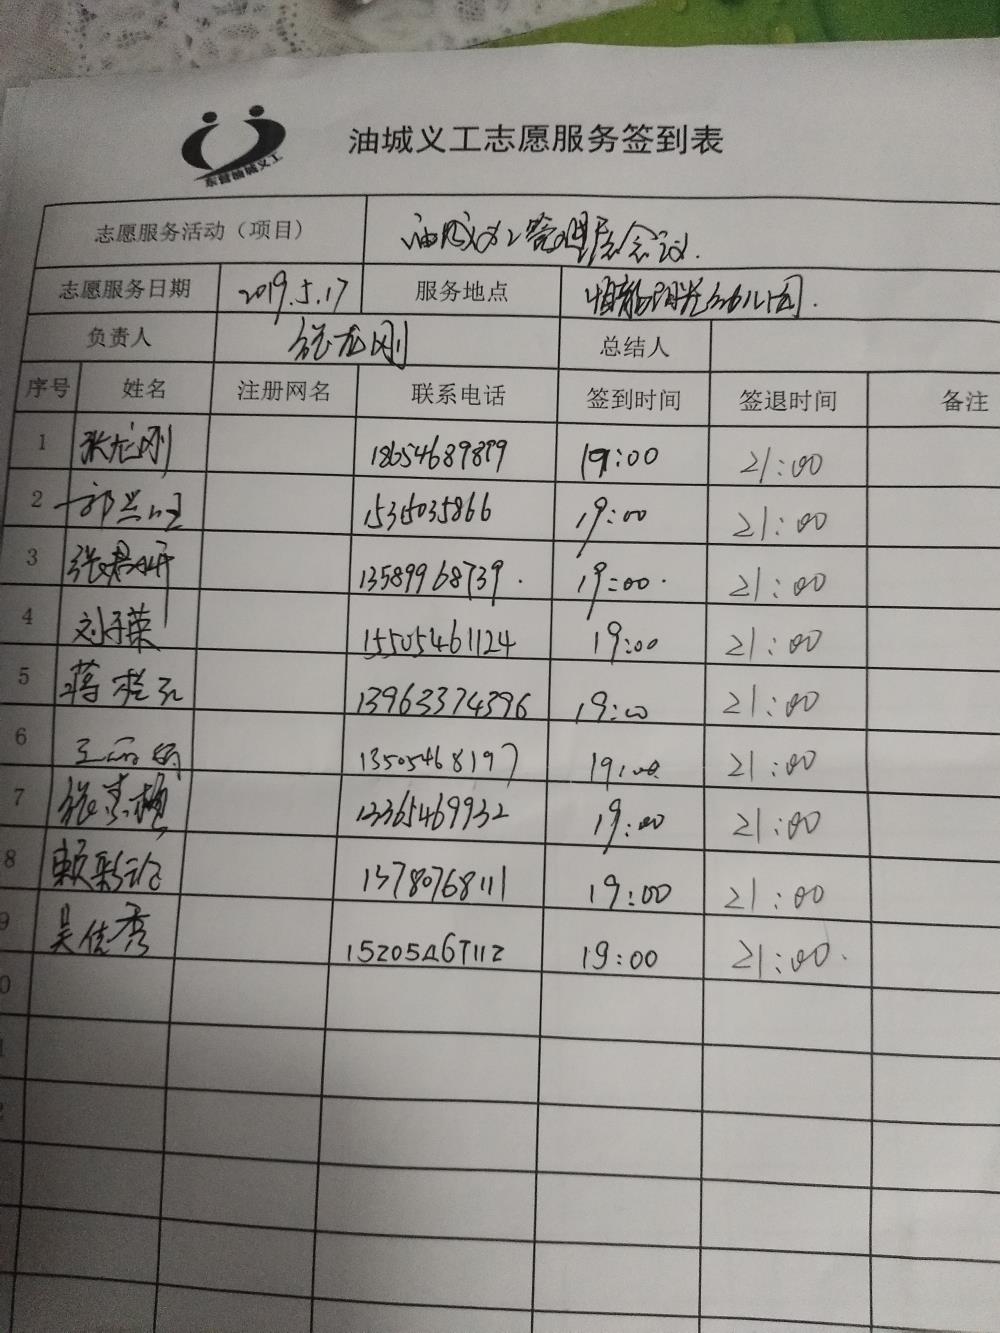 东营油城义工
油城义工志愿服务签到表
志愿服务活动（项目） 油城义工管理层会议.
志愿服务日期 2019.5.17 服务地点
负责人 张龙刚 总结人
序号 姓名 注册网名 联系电话 签到时间 签退时间 备注
1 张龙刚 18654689899 19:00 21:00
2 19:00 21:00
3 13589968739. 19:00. 21:00
4 刘子荣 15505461124 19:00 21:00
5 13963374396 19:00 21:00
6 13505468197 19:00 21:00
7 13365469932 19:00 21:00
8 13780768111 19:00 21:00
9 吴佳秀 15205467112 19:00 21:00.
0
1
2